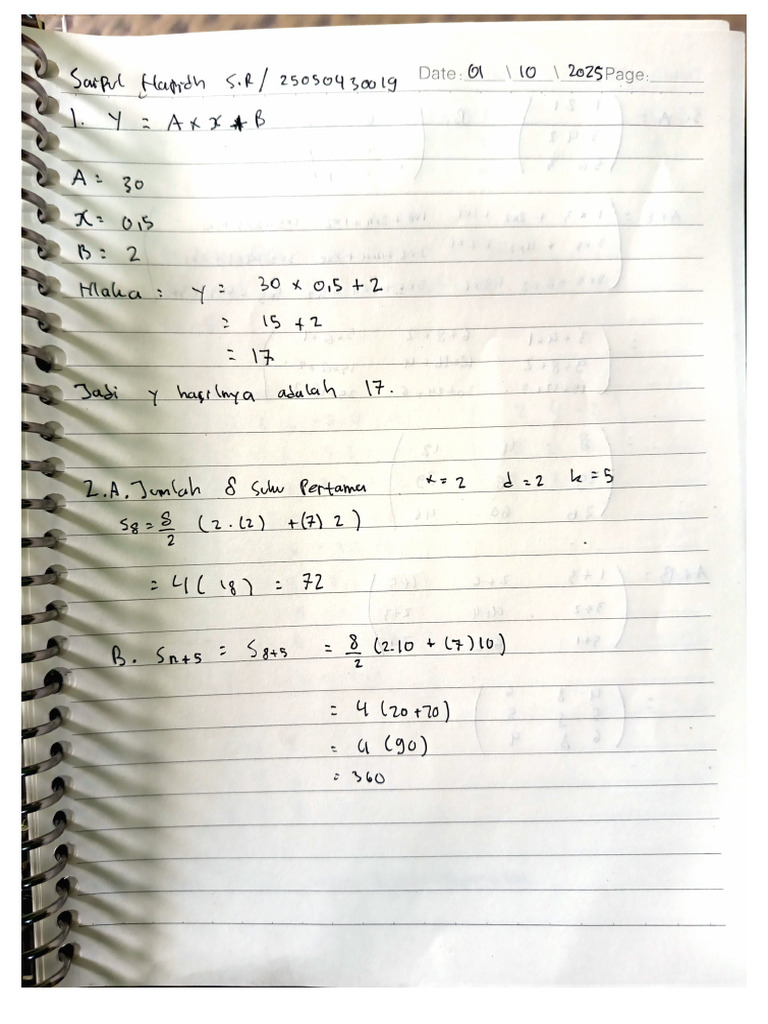 Saipul Hapidh S.R / 25050430019 Date: 01 \ 10 \ 2025 Page:
1. Y = A x x + B
A = 30
x = 0,5
B = 2
Maka : y = 30 x 0,5 + 2
= 15 + 2
= 17
Jadi y hasilnya adalah 17.
2. A. Jumlah 8 suku Pertama x = 2 d = 2 k = 5
S8 = 8/2 (2.(2) + (7) 2)
= 4 ( 18) = 72
B. Sn+5 = S8+5 = 8/2 (2.10 + (7)10)
= 4 (20+70)
= 4 (90)
= 360